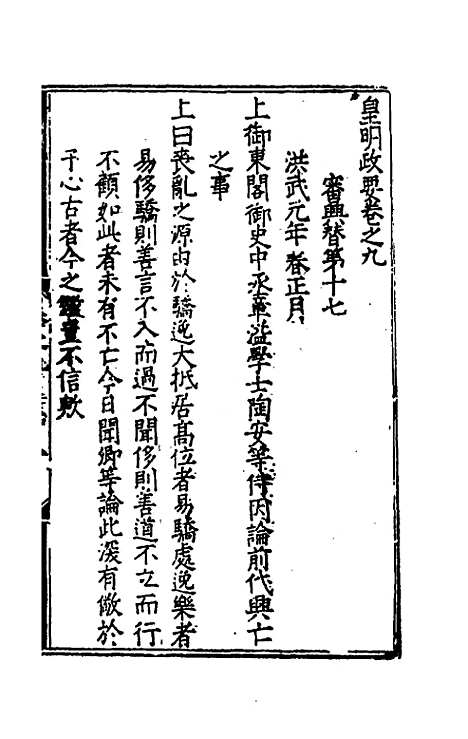 皇明政要卷之九
審興替第十七
洪武元年春正月
上御東閣御史中丞章溢學士陶安等侍因論前代興亡
之事
上曰喪亂之源由於驕逸大抵居高位者易驕處逸樂者
易侈驕則善言不入而過不聞侈則善道不立而行
不顧如此者未有不亡今日聞卿等論此深有儆於
予心古者今之鑑豈不信歟